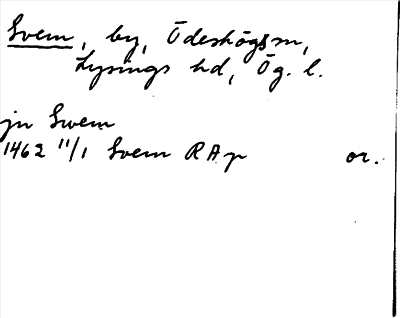 Svem, by, Ödeshögs sn,
Lysings hd, Ög. l.
jn Swem
1462 11/1 Svem RAp or.